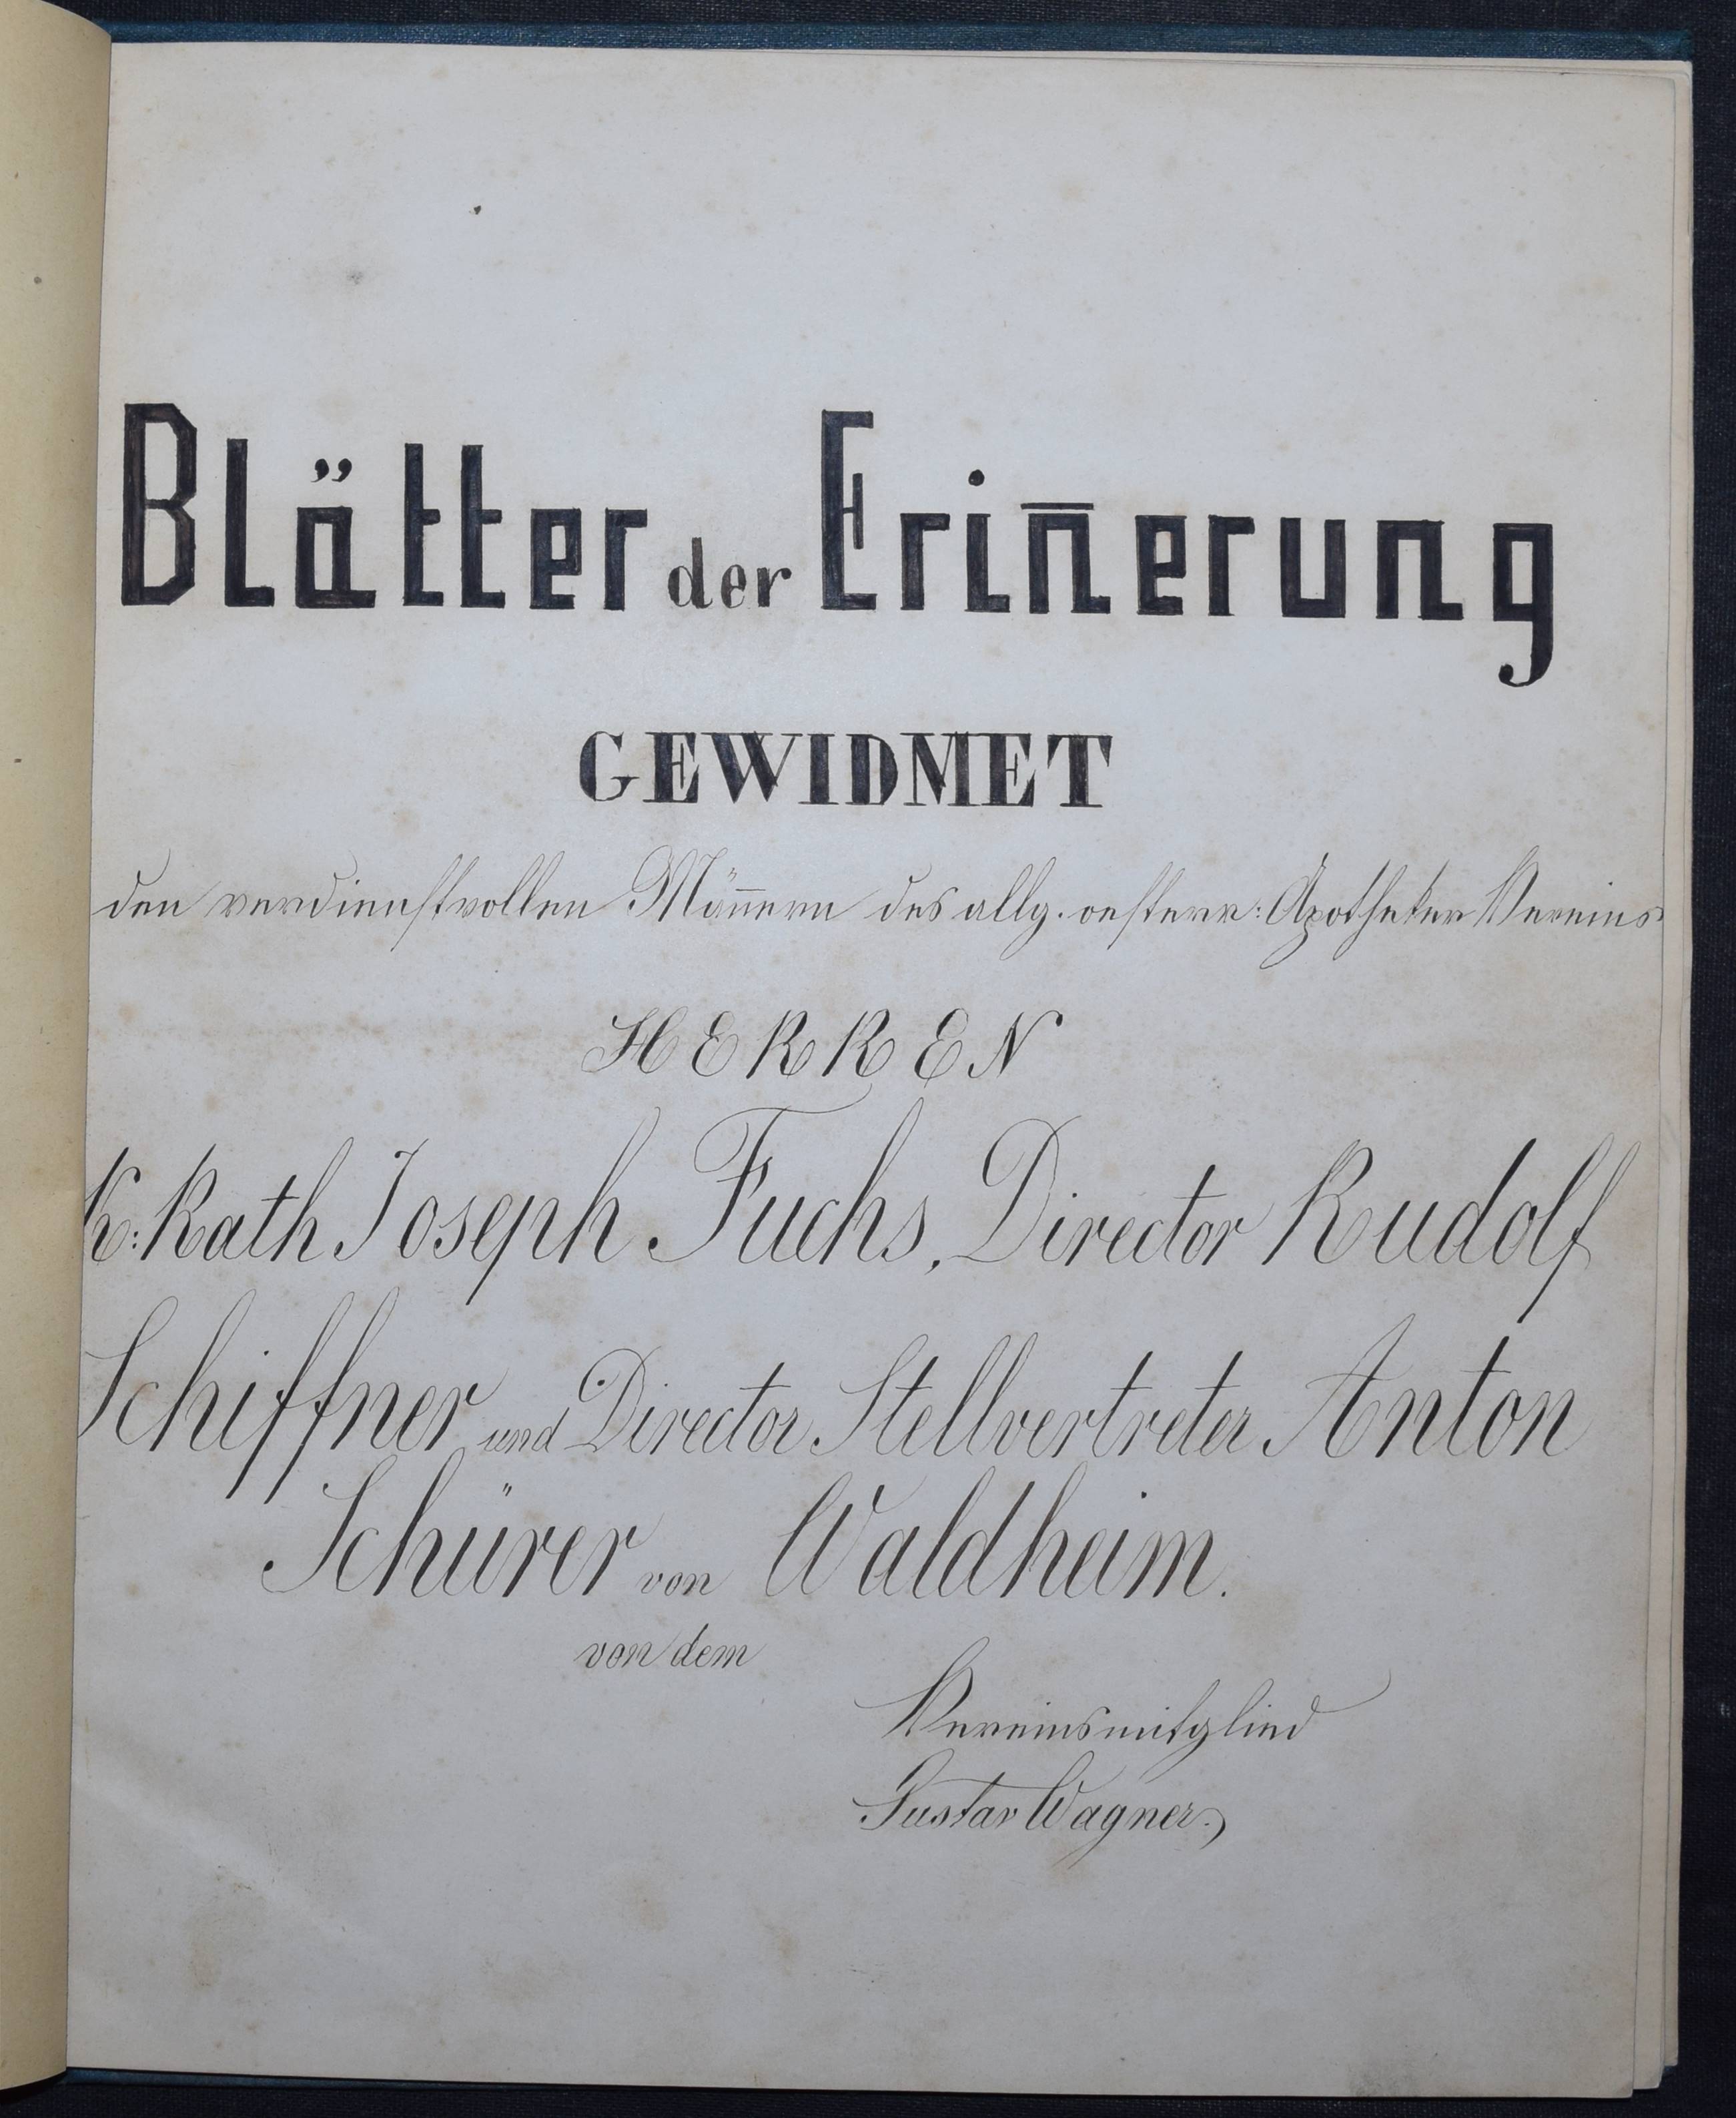 Blätter der Erin̄erung
GEWIDMET
den verdienstvollen Män̄ern des allg. oesterr: Apotheker Vereins
HERREN
K: Rath Joseph Fuchs, Director Rudolf
Schiffner und Director Stellvertreter Anton
Schürer von Waldheim.
von dem
Vereinsmitglied
Gustav Wagner.